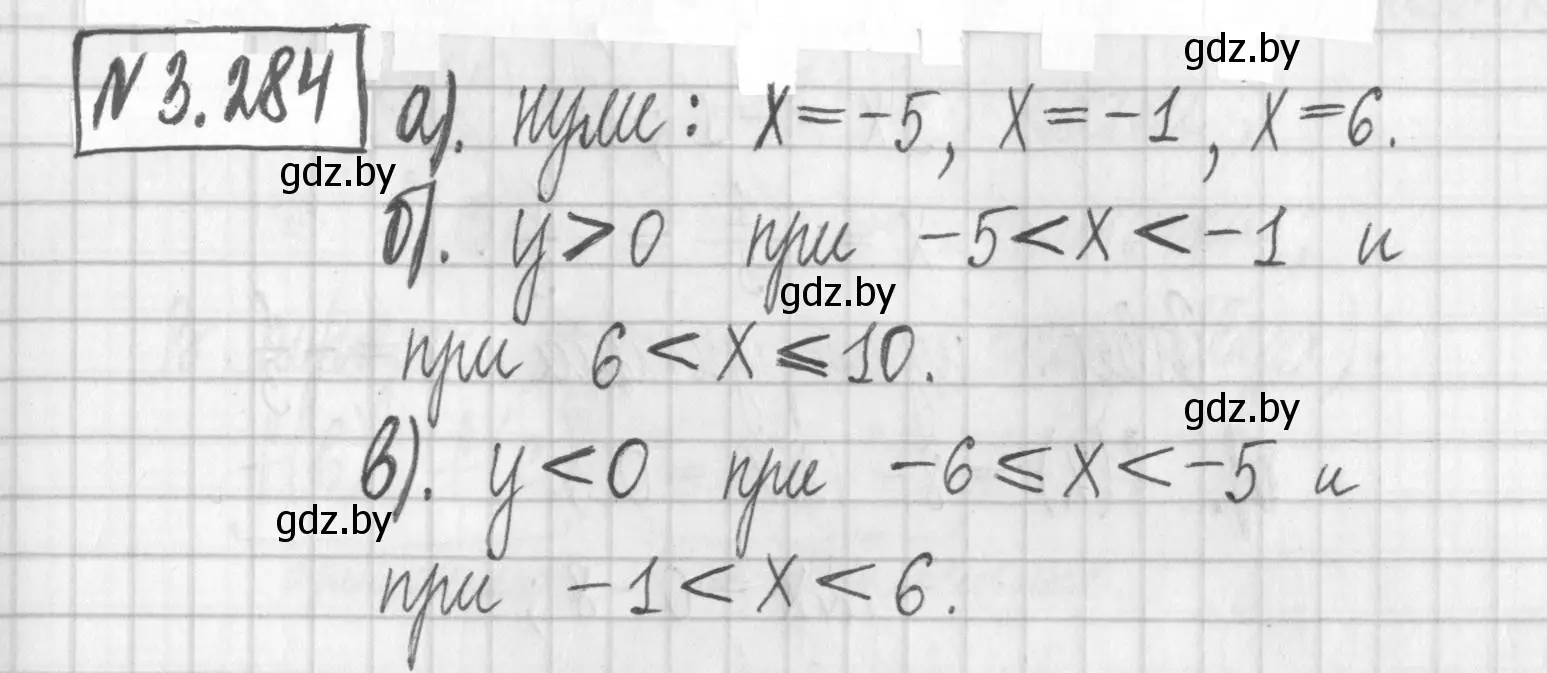 № 3.284 а). нули: x = -5, x = -1, x = 6.
gdz.by
gdz.by
б). y > 0 при -5 < x < -1 и
gdz.by
при 6 < x ≤ 10.
gdz.by
в). y < 0 при -6 ≤ x < -5 и
gdz.by
при -1 < x < 6.